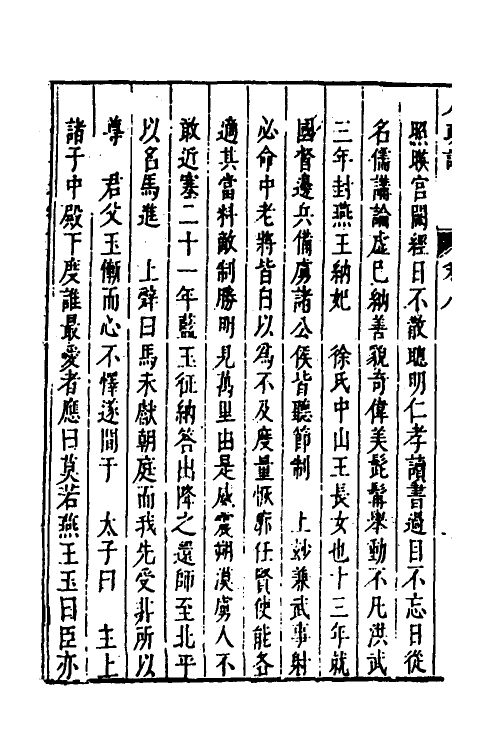 照暎宮闕經日不散聰明仁孝讀書過目不忘日從
名儒講論虛巳納善貌奇偉美髭髯舉動不凡洪武
三年封燕王納妃　徐氏中山王長女也十三年就
國督邊兵備虜諸公侯皆聽節制　上妙兼武事射
必命中老將皆自以為不及度量恢廓任賢使能各
適其當料敵制勝明見萬里由是威震朔漠虜人不
敢近塞二十一年藍玉征納答出降之還師至北平
以名馬進　上聲曰馬未獻朝庭而我先受非所以
尊　君父玉慚而心不懌遂間于　太子曰　主上
諸子中殿下度誰最愛者應曰莫若燕王玉曰臣亦